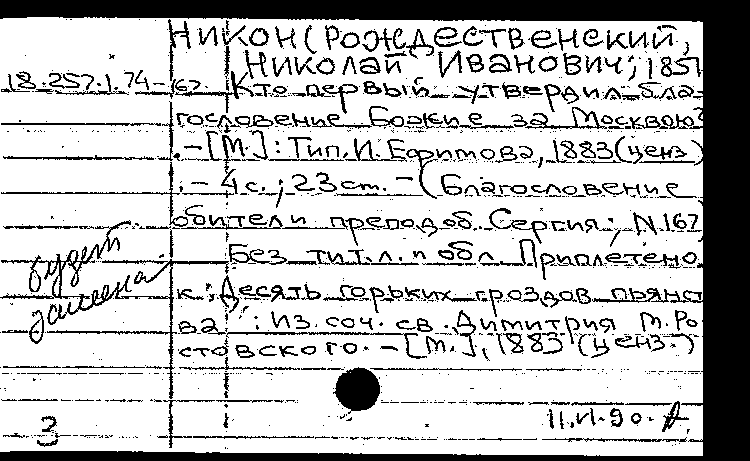 НИКОН (РОЖДЕСТВЕНСКИЙ,
НИКОЛАЙ ИВАНОВИЧ; 1851
18.257.1.74-167 Кто первый утвердил бла-
гословение Божие за Москвою?
.-[М.]: Тип. И. Ефимова, 1883 (ценз)
.- 4 с.; 23 см. - (Благословение
обители преподоб. Сергия; N 167)
Без тит. л. и обл. Приплетено
к: Десять горьких гроздов пьянст
ва: Из соч. св. Димитрия М. Ро
стовского. - [М.], 1883 (ценз.)
будет
замена
11.VI.90.
3